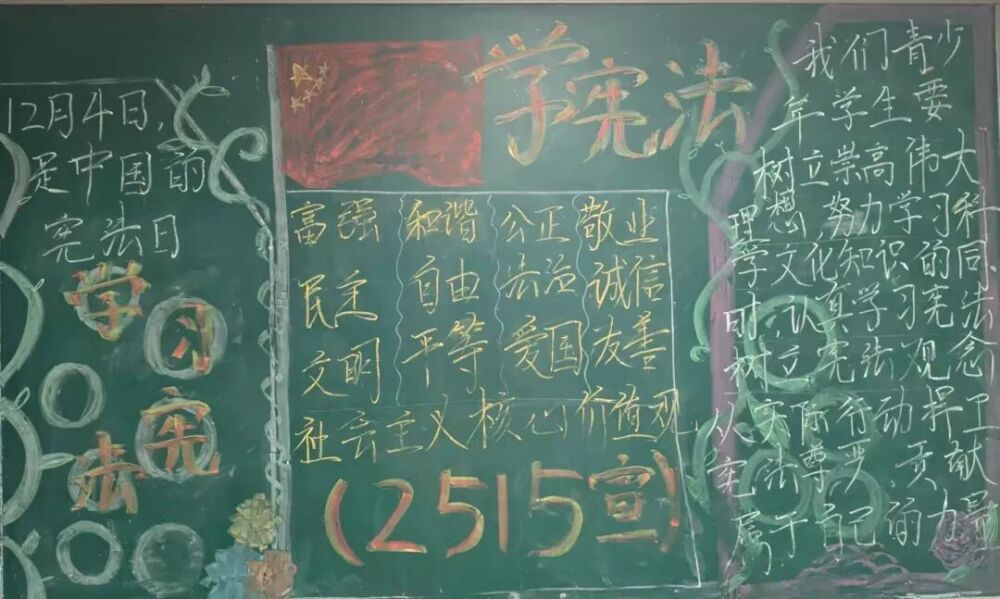 12月4日,
是中国的
宪法日
学习
宪法
学宪法
富强 和谐 公正 敬业
民主 自由 法治 诚信
文明 平等 爱国 友善
社会主义核心价值观
(2515宣)
我们青少
年学生要
树立崇高伟大
理想 努力学习科
学文化知识的同
时,认真学习宪法
树立宪法观念
从实际行动捍卫
宪法尊严.贡献
属于自己的力量